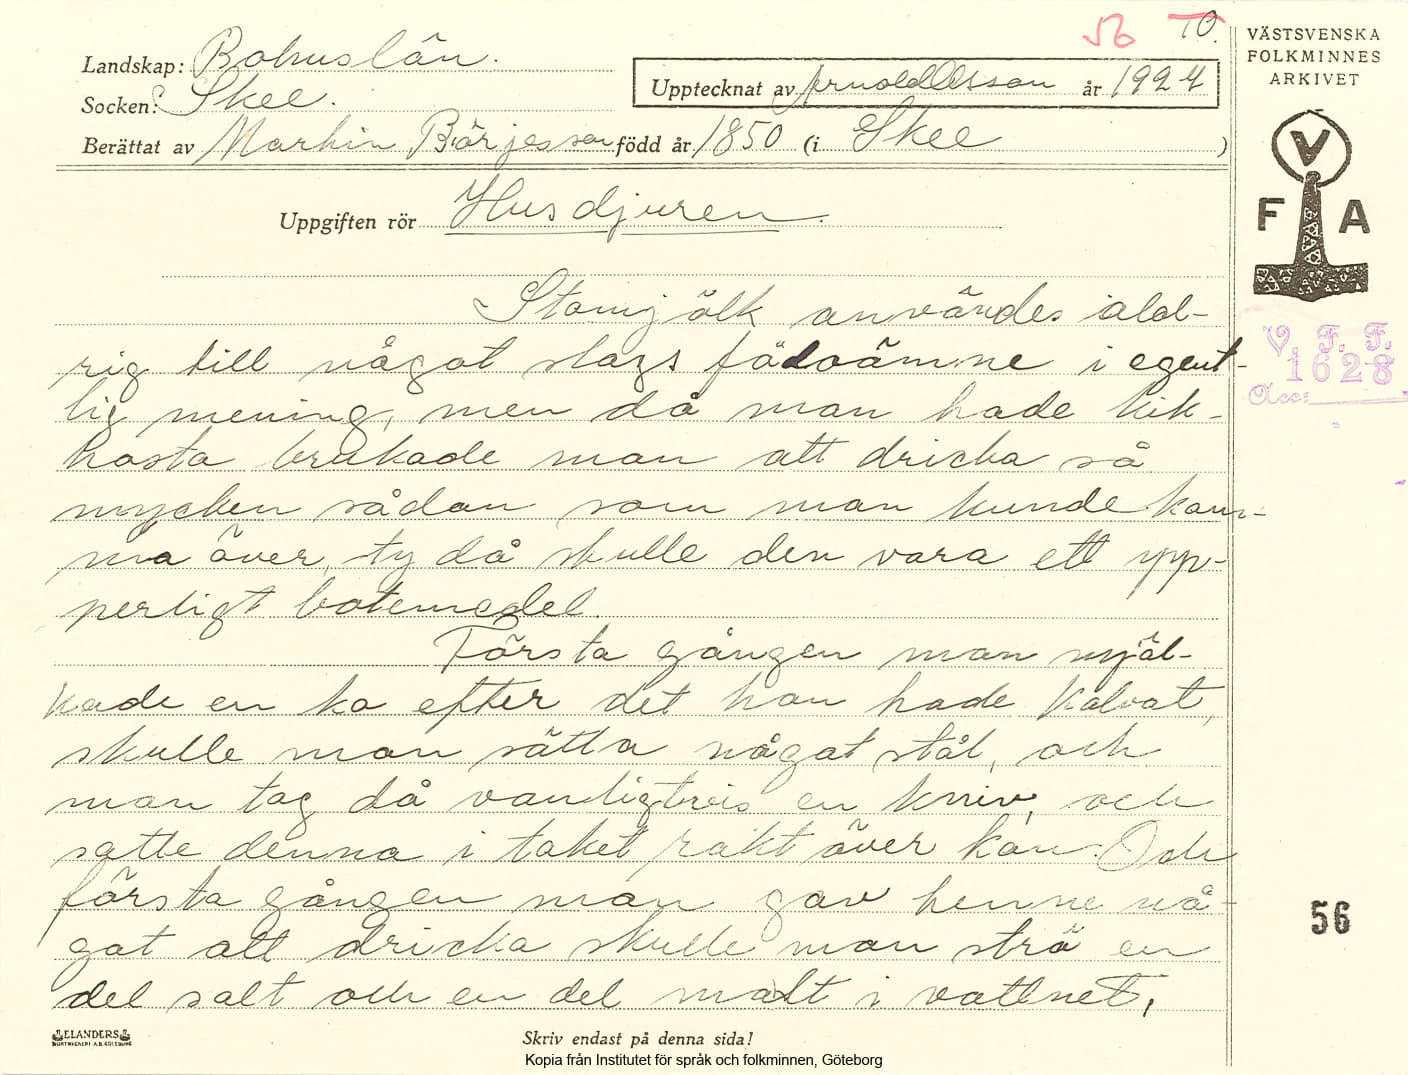 56 10.
VÄSTSVENSKA
FOLKMINNES
ARKIVET
Landskap: Bohuslän.
Upptecknat av Arnold Olsson år 1924
Socken: Skee.
Berättat av Martin Börjesson född år 1850 (i Skee )
V
F A
Uppgiften rör Husdjuren.
Stomjölk användes ald-
rig till något slags födoämne i egent-
lig mening, men då man hade kik-
hosta brukade man att dricka så
mycken sådan som man kunde kom-
ma över, ty då skulle den vara ett yp-
perligt botemedel.
V. F. F.
1628
Acc:
Första gången man mjöl-
kade en ko efter det hon hade kalvat,
skulle man sätta något stål, och
man tog då vanligtvis en kniv, och
satte denna i taket rakt över kon. Och
första gången man gav henne nå-
got att dricka skulle man strö en
del salt och en del malt i vattnet,
56
ELANDERS
BOKTRYCKERI A.B. GÖTEBORG
Skriv endast på denna sida!
Kopia från Institutet för språk och folkminnen, Göteborg